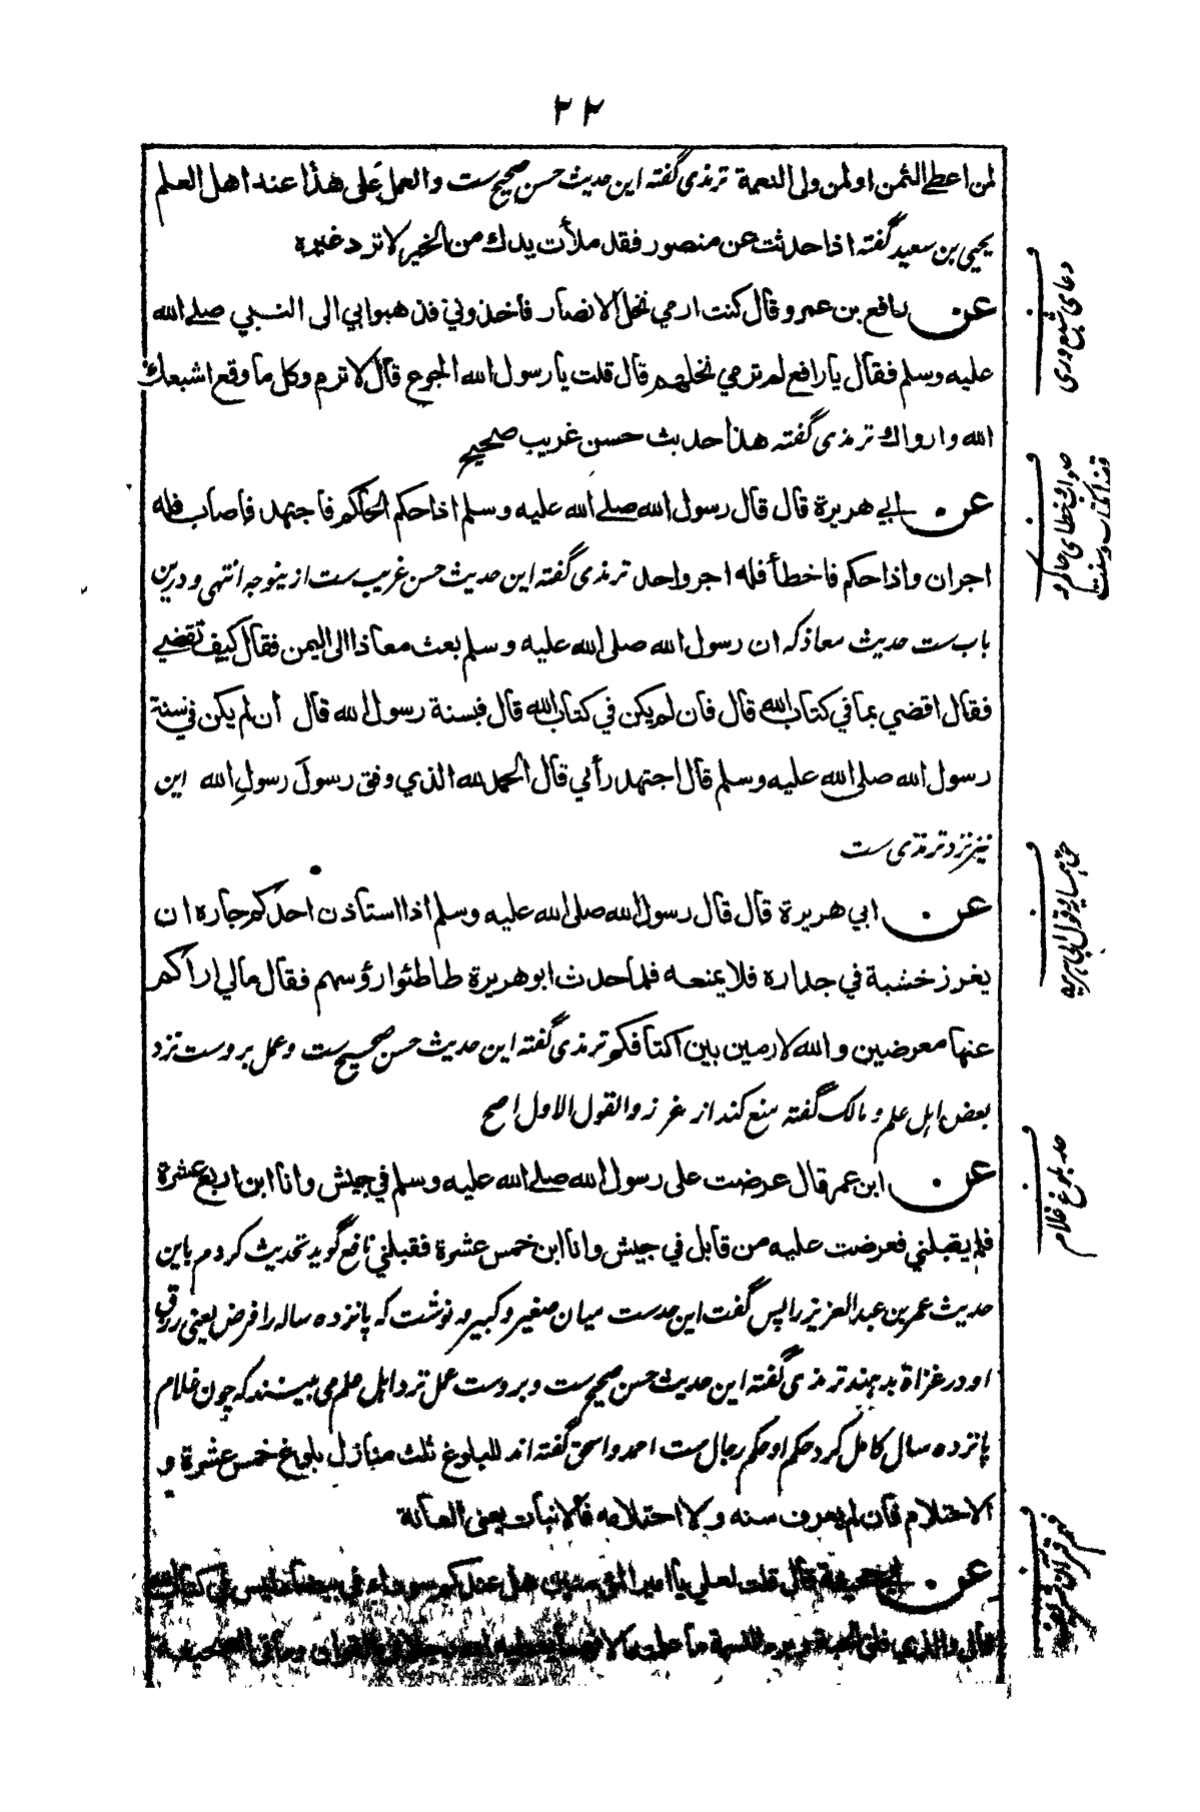 ۲۲
لمن اعطے الثمن اولمن ولی النعمة ترمذی گفته این حدیث حسن صحیح ست والعمل عَلی هذا عند اهل العلم
یحیی بن سعید گفته اذا حدثت عن منصور فقد ملأت یدك من الخیر لا ترد غیره
دعای سیع روزی
عن رافع بن عمرو قال کنت ارمی نخل الانصار فأخذونی فذهبوابی الی النبی صلے الله
علیه وسلم فقال یا رافع لم ترمی نخلهم قال قلت یا رسول الله الجوع قال لا ترم وکل ما وقع اشبعك
الله وارواك ترمذی گفته هذا حدیث حسن غریب صحیح
صواب وخطای حاکم و
قضا بکتاب و سنت
عن ابی هریرة قال قال رسول الله صلے الله علیه وسلم اذا حکم الحاکم فاجتهد فاصاب فله
اجران واذا حکم فاخطأ فله اجر واحد ترمذی گفته این حدیث حسن غریب ست ازینوجه انتهی ودرین
باب ست حدیث معاذ که ان رسول الله صلی الله علیه وسلم بعث معاذا الی الیمن فقال کیف تقضے
فقال اقضی بما فی کتاب الله قال فان لم یکن فی کتاب الله قال فبسنة رسول الله قال أن لم یکن فی سنة
رسول الله صلی الله علیه وسلم قال اجتهد رأیی قال الحمد لله الذی وفق رسولَ رسولِ الله این
نیز نزد ترمذی ست
حق همسایه و قول ابی هریره
عن ابی هریرة قال قال رسول الله صلی الله علیه وسلم اذا استأذن احدکم جاره ان
یغرز خشبة فی جداره فلا یمنعه فلما حدث ابو هریرة طاطئوا رؤسهم فقال مالی اراکم
عنها معرضین والله لارمین بین اکتافکم ترمذی گفته این حدیث حسن صحیح ست وعمل بروست نزد
بعض اهل علم و مالک گفته منع کند از غرز والقول الاول اصح
حد بلوغ غلام
عن ابن عمر قال عرضت علی رسول الله صلے الله علیه وسلم فی جیش وانا ابن اربع عشرة
فلم یقبلنی فعرضت علیه من قابل فی جیش وانا ابن خمس عشرة فقبلنی نافع گوید تحدیث کردم باین
حدیث عمر بن عبدالعزیز را پس گفت این حدست میان صغیر وکبیر و نوشت که پانزده ساله را فرض یعنی رزق
او در غزاة بدهند ترمذی گفته این حدیث حسن صحیح ست وبروست عمل نزد اهل علم می بینند که چون غلام
پانزده سال کامل کرد حکم او حکم رجال ست احمد واسحق گفته اند للبلوغ ثلث منازل بلوغ خمس عشرة و
الاحتلام فان لم یعرف سنه ولا احتلامه فالانبات یعنی العانة
فهم قرآن
عن ابی جحیفة قال قلت لعلی یا امیر المؤمنین هل عندکم سوداء فی بیضاء لیس فی کتاب الله
قال والذی فلق الحبة وبرء النسمة ما علمت الا فهما یعطیه الله رجلا فی القرآن وما فی الصحیفة